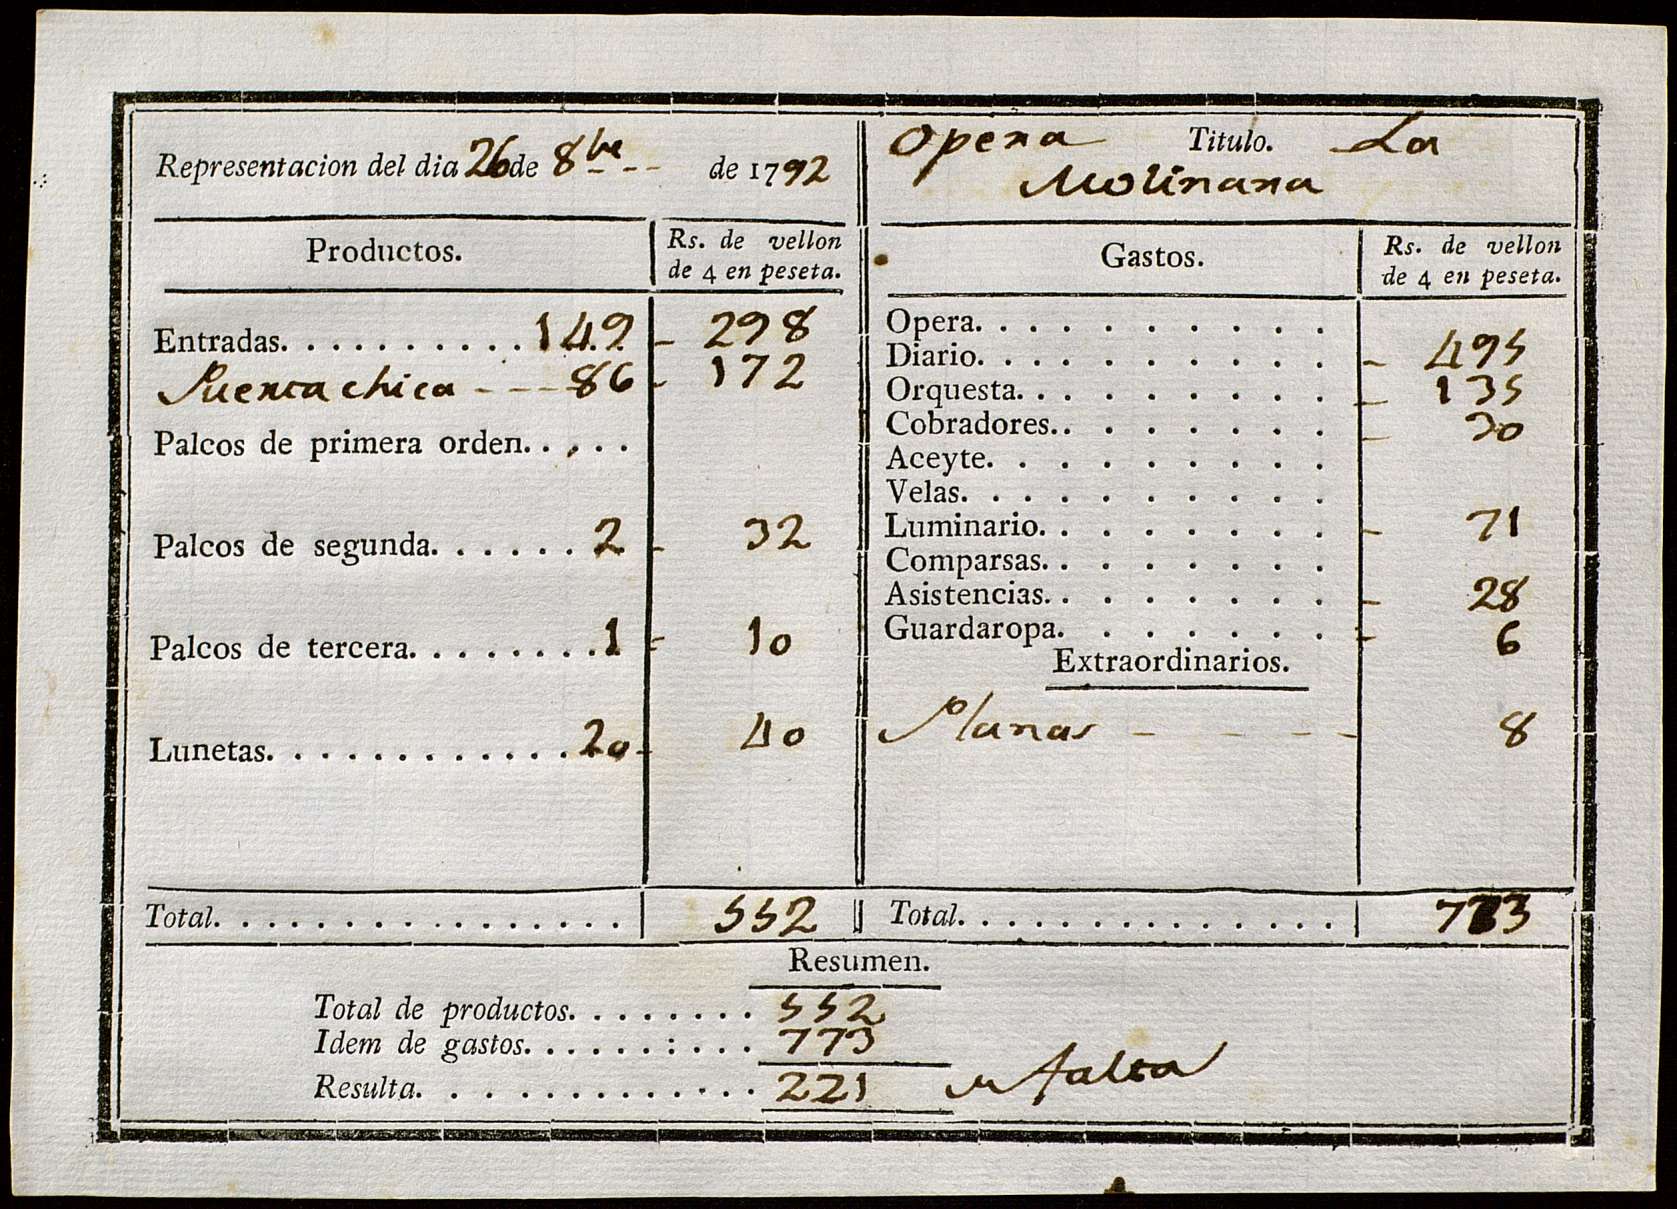 Representacion del dia 26 de 8bre de 1792
Opera Titulo. La
Molinara
Productos. Rs. de vellon
de 4 en peseta.
Entradas. 149 298
Puerta chica 86 172
Palcos de primera orden.
Palcos de segunda. 2 32
Palcos de tercera. 1 10
Lunetas. 20 40
Total. 552
Gastos. Rs. de vellon
de 4 en peseta.
Opera.
Diario. 495
Orquesta. 135
Cobradores. 30
Aceyte.
Velas.
Luminario. 71
Comparsas.
Asistencias. 28
Guardaropa. 6
Extraordinarios.
Planas 8
Total. 773
Resumen.
Total de productos. 552
Idem de gastos. 773
Resulta. 221 falta